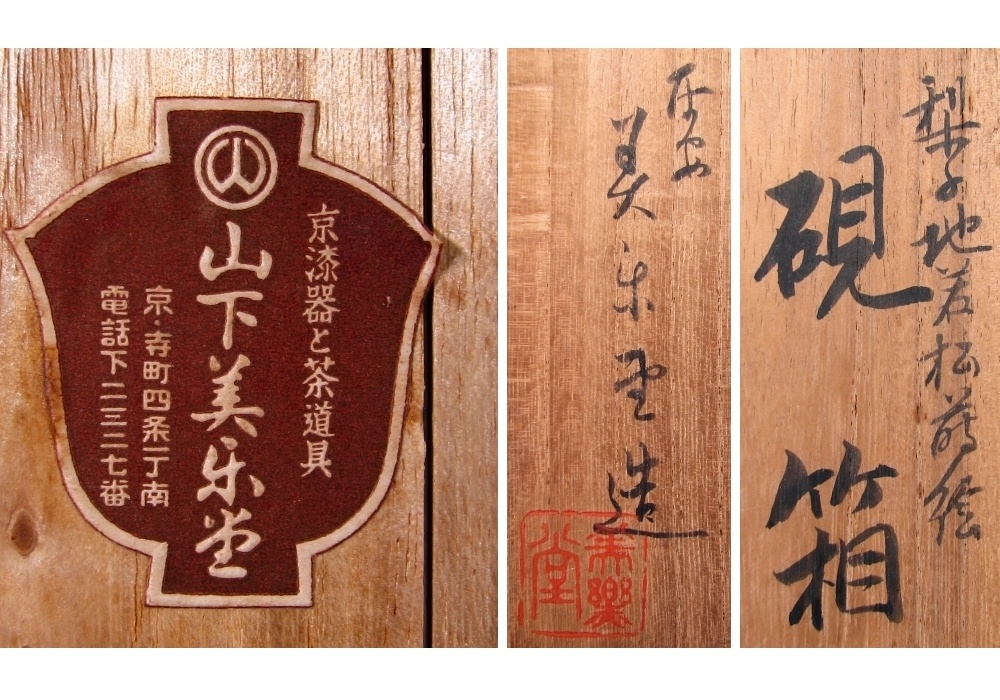 京漆器と茶道具
山下美乐堂
京・寺町四条一丁南
電話下二三二七番
美乐堂造
美樂堂
梨子地若松蒔絵
硯箱